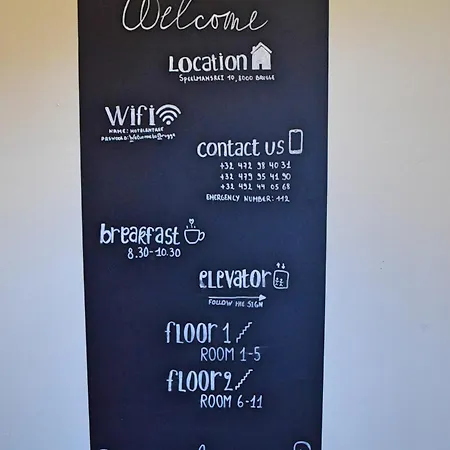 Welcome
Location
Speelmansrei 10, 8000 Brugge
Wifi
Name: Hotelentree
contact us
+32 472 98 40 31
+32 479 95 41 90
+32 492 44 05 68
Emergency number: 112
breakfast
8.30-10.30
elevator
Follow the sign
floor 1
Room 1-5
floor 2
Room 6-11